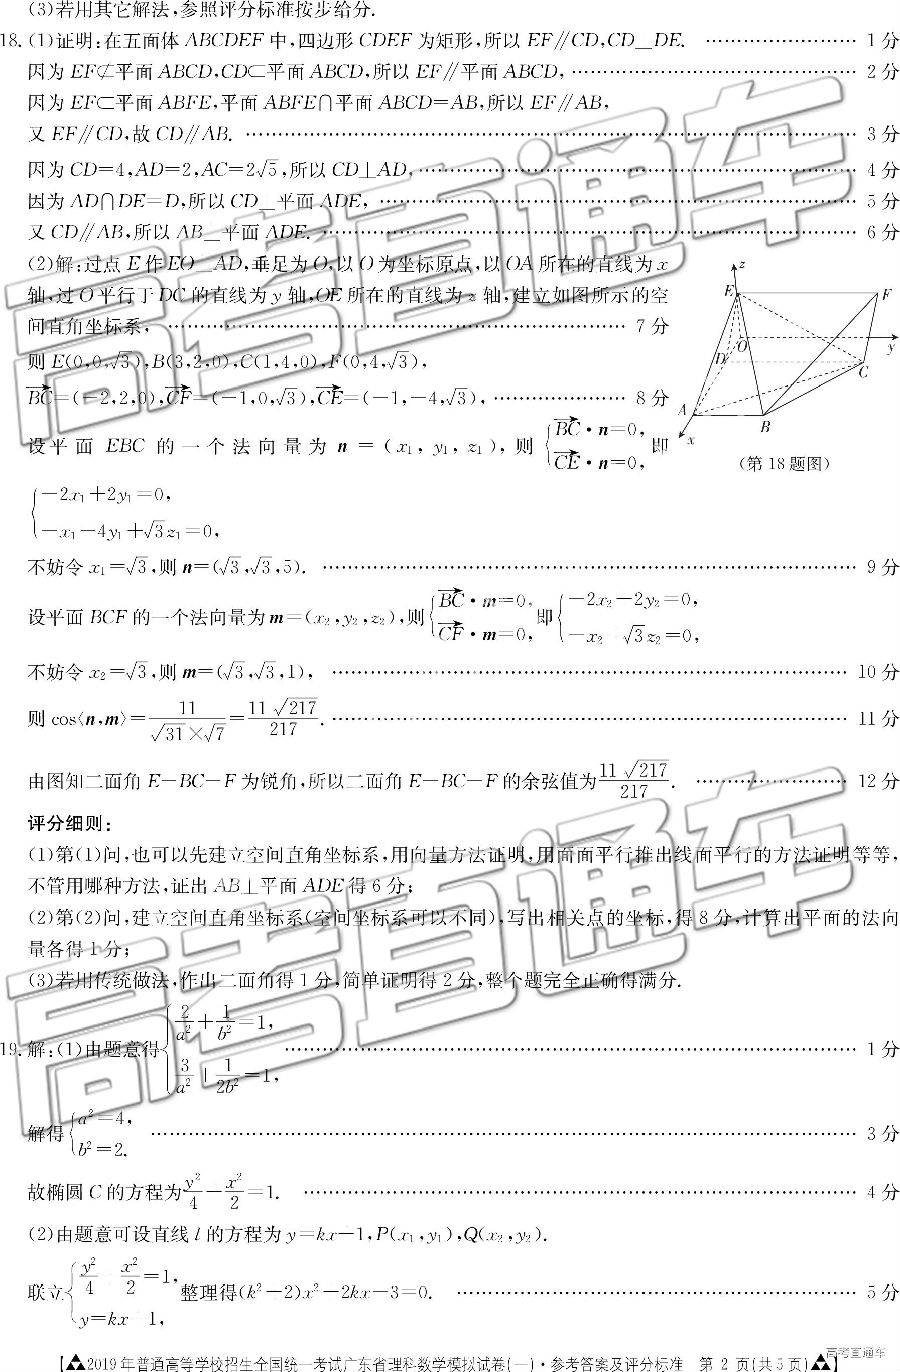 (3)若用其它解法,参照评分标准按步给分.
18.(1)证明:在五面体 ABCDEF 中,四边形 CDEF 为矩形,所以 EF∥CD,CD⊥DE. …… 1分
因为 EF⊄平面 ABCD,CD⊂平面 ABCD,所以 EF∥平面 ABCD, …… 2分
因为 EF⊂平面 ABFE,平面 ABFE∩平面 ABCD=AB,所以 EF∥AB,
又 EF∥CD,故 CD∥AB. …… 3分
因为 CD=4,AD=2,AC=2√5,所以 CD⊥AD, …… 4分
因为 AD∩DE=D,所以 CD⊥平面 ADE, …… 5分
又 CD∥AB,所以 AB⊥平面 ADE. …… 6分
(2)解:过点 E 作 EO⊥AD,垂足为 O,以 O 为坐标原点,以 OA 所在的直线为 x
轴,过 O 平行于 DC 的直线为 y 轴,OE 所在的直线为 z 轴,建立如图所示的空
间直角坐标系, …… 7分
则 E(0,0,√3),B(3,2,0),C(1,4,0),F(0,4,√3),
BC=(-2,2,0),CF=(-1,0,√3),CE=(-1,-4,√3), …… 8分
z
E
F
O
D
y
C
A
B
x
(第18题图)
设平面 EBC 的一个法向量为 n=(x₁,y₁,z₁),则{BC·n=0, CE·n=0,即
{-2x₁+2y₁=0,
-x₁-4y₁+√3z₁=0,
不妨令 x₁=√3,则 n=(√3,√3,5). …… 9分
设平面 BCF 的一个法向量为 m=(x₂,y₂,z₂),则{BC·m=0, CF·m=0,即{-2x₂-2y₂=0, -x₂ √3z₂=0,
不妨令 x₂=√3,则 m=(√3,√3,1), …… 10分
则 cos⟨n,m⟩=11/(√31×√7)=11√217/217. …… 11分
由图知二面角 E-BC-F 为锐角,所以二面角 E-BC-F 的余弦值为11√217/217. …… 12分
评分细则:
(1)第(1)问,也可以先建立空间直角坐标系,用向量方法证明,用面面平行推出线面平行的方法证明等等,
不管用哪种方法,证出 AB⊥平面 ADE 得6分;
(2)第(2)问,建立空间直角坐标系(空间坐标系可以不同),写出相关点的坐标,得8分,计算出平面的法向
量各得1分;
(3)若用传统做法,作出二面角得1分,简单证明得2分,整个题完全正确得满分.
19.解:(1)由题意得{2/a²+1/b²=1, 3/a²+1/2b²=1, …… 1分
解得{a²=4, b²=2. …… 3分
故椭圆 C 的方程为y²/4-x²/2=1. …… 4分
(2)由题意可设直线 l 的方程为 y=kx-1,P(x₁,y₁),Q(x₂,y₂).
联立{y²/4 x²/2=1, y=kx 1,整理得(k²-2)x²-2kx-3=0. …… 5分
【2019年普通高等学校招生全国统一考试广东省理科数学模拟试卷(一)·参考答案及评分标准 第2页(共5页)】
高考直通车
高考直通车
高考直通车